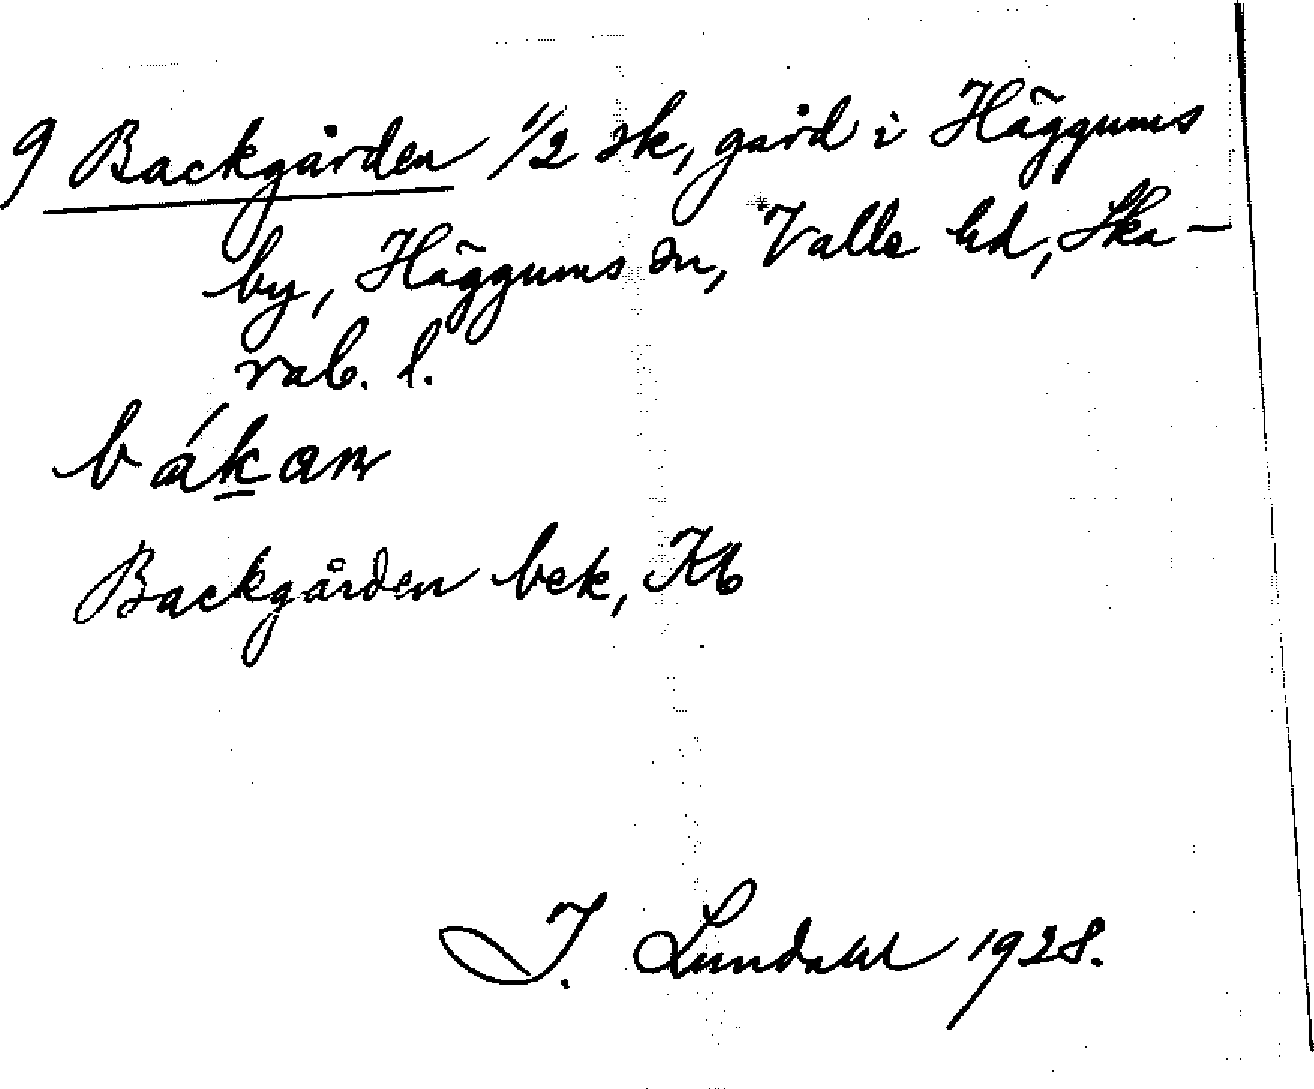 9 Backgården 1/2 sk, gård i Häggums
by, Häggums sn, Valle hd, Ska-
rab. l.
bákan
Backgården bek, Kb
I. Lundahl 1928.